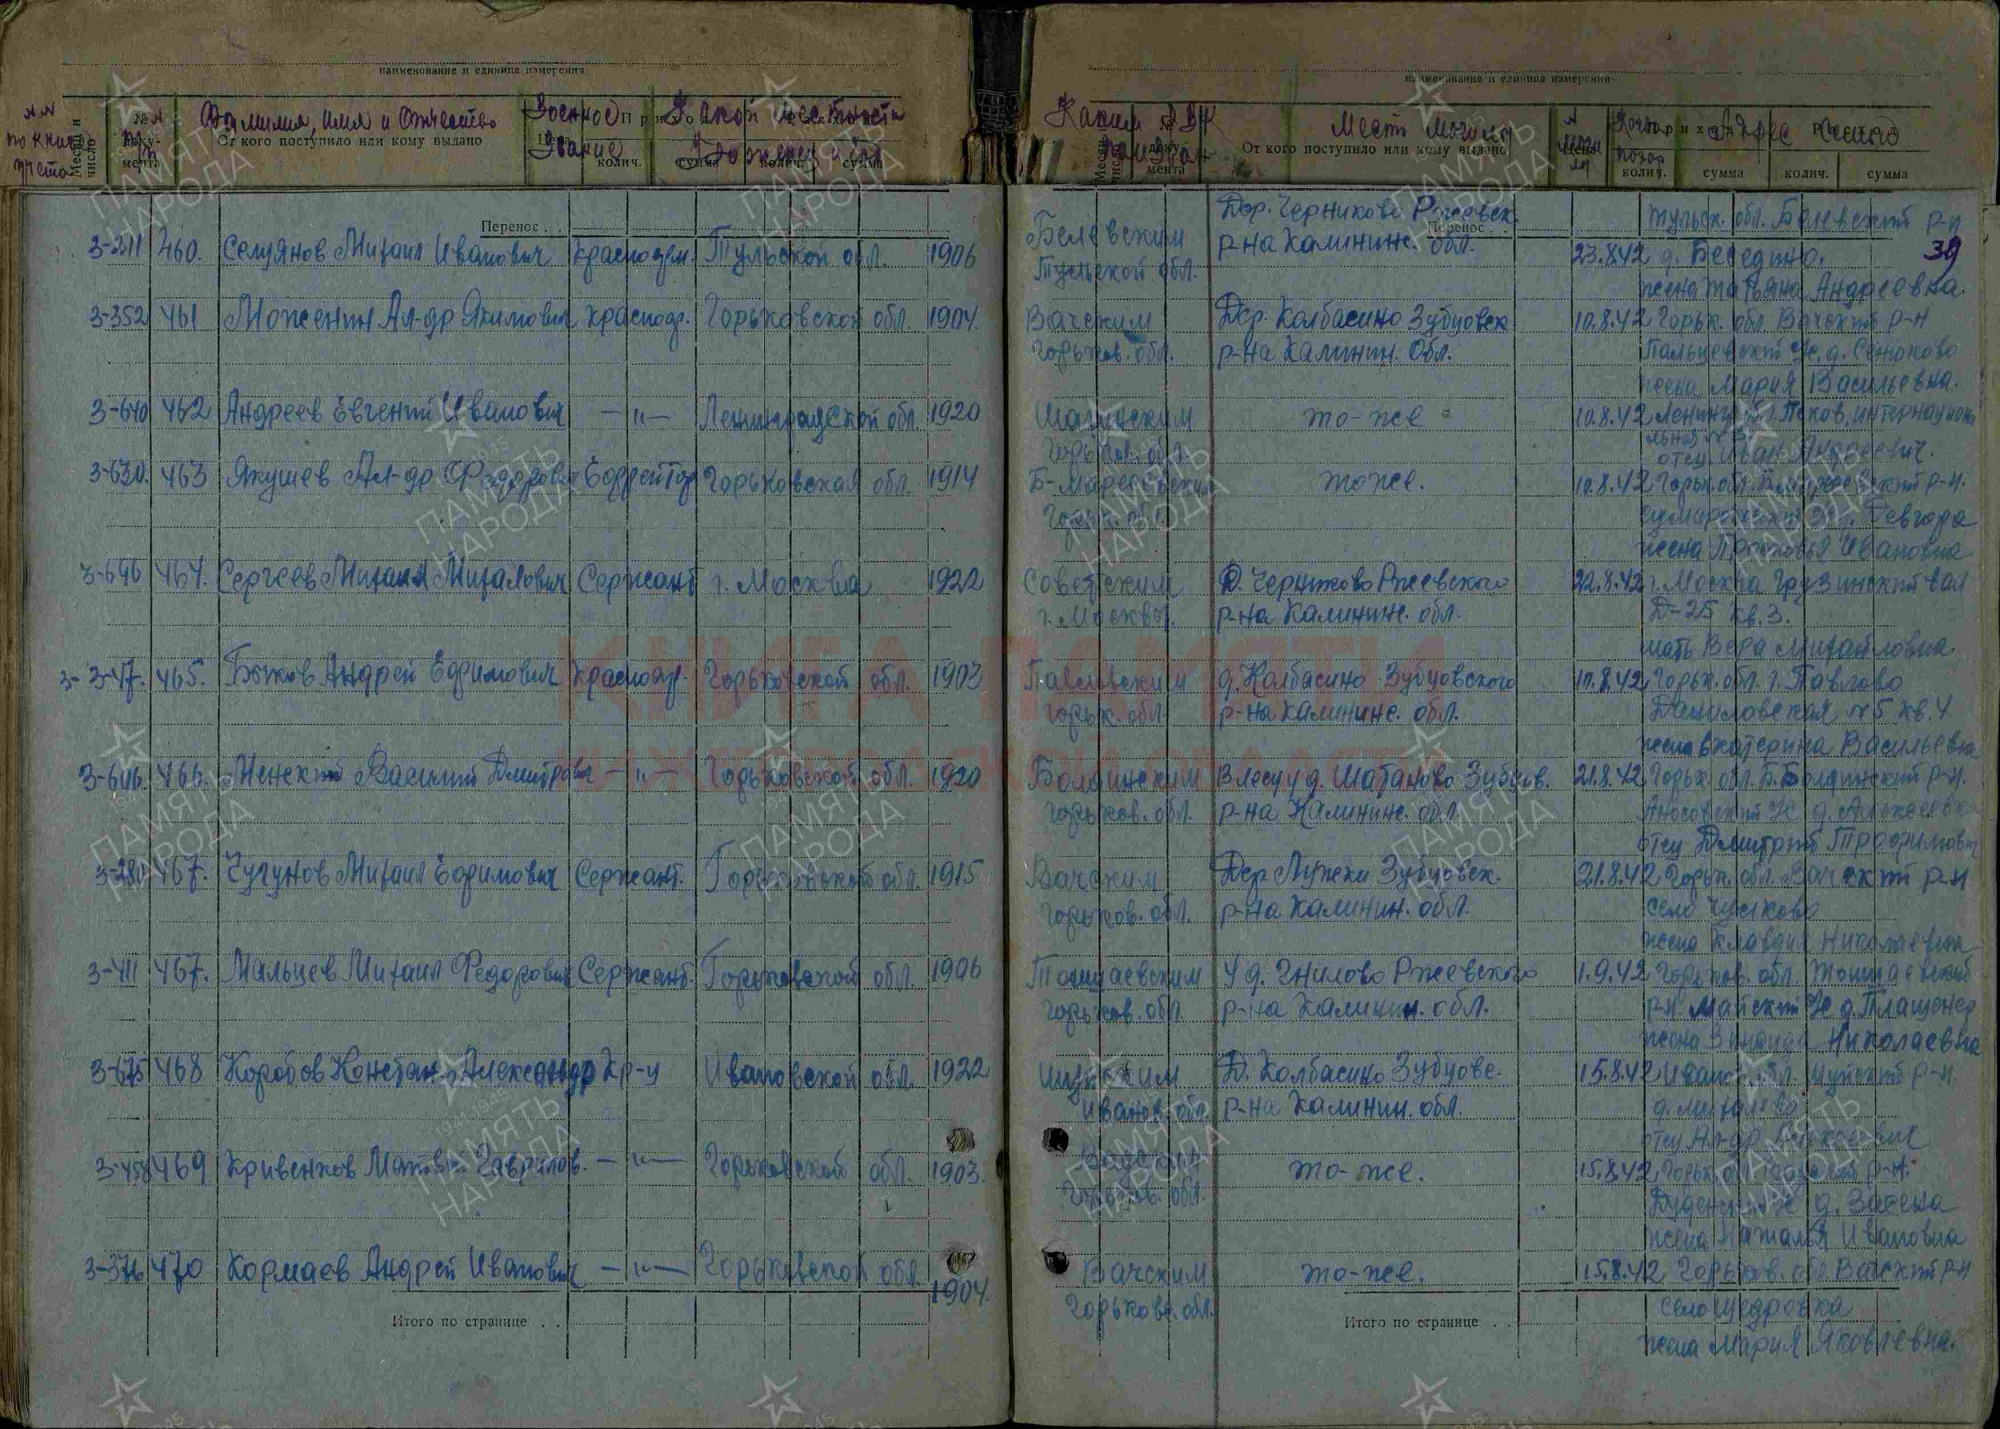 наименование и единица измерения
наименование и единица измерения
№№ по книге учета
Месяц и число
№№ документа
Фамилия, имя и отчество
От кого поступило или кому выдано
Военное звание
Приход
колич.
сумма
колич.
сумма
Какой местности
Каким РВК призван
Место могилы
От кого поступило или кому выдано
Цена
колич.
сумма
колич.
сумма
Адрес
39
Перенос . .
Перенос . .
3-211 460. Селиянов Михаил Иванович красноарм. Тульской обл. 1906
Белевским Тульской обл.
Дер. Черниково Ржевск. р-на Калинин. обл.
23.8.42 Тульск. обл. Белевский р-н д. Беседино. жена Татьяна Андреевна.
3-352 461 Моженин Ал-др Якимович красноар. Горьковской обл. 1904.
Вачским Горьков. обл.
Дер. Колбасино Зубцовск р-на Калинин. Обл.
10.8.42 Горьк. обл. Вачский р-н
жена Мария Васильевна.
3-640 462 Андреев Евгений Иванович —"— Ленинградской обл. 1920
то-же
10.8.42 Ленингр. обл. Псков, интернациональная
отец Иван Андреевич.
3-630. 463 Якушев Ал-др Федорович Ефрейтор Горьковская обл. 1914
Б-Маресевским Горьк. обл.
тоже.
10.8.42 Горьк. обл. Б-Маресевский р-н.
жена Прасковья Ивановна
3-696 464. Сергеев Михаил Михалович Сержант г. Москва 1922
Советским г. Москвы.
Д. Черниково Ржевского р-на Калинин. обл.
22.8.42 г. Москва Грузинский вал Д-25 кв. 3.
мать Вера Михайловна.
3-347. 465. Быков Андрей Ефимович красноар. Горьковской обл. 1903
Павловским Горьк. обл.
д. Колбасино Зубцовского р-на Калинин. обл.
10.8.42 Горьк. обл. г. Павлово
Даниловская №5 кв. 4
жена Екатерина Васильевна
3-606. 466. Менский Василий Дмитрович —"— Горьковской обл. 1920
Болдинским Горьков. обл.
В лесу у д. Шабаново Зубцов. р-на Калинин. обл.
21.8.42 Горьк. обл. Б.Болдинский р-н.
отец Дмитрий Трофимович
3-280 467. Чугунов Михаил Ефимович Сержант. Горьковской обл. 1915
Вачским Горьков. обл.
Дер. Лужки Зубцовск. р-на Калинин. обл.
21.8.42 Горьк. обл. Вачский р-н
село Чулково
жена Клавдия Николаевна
3-411 467. Мальцев Михаил Федорович Сержант. Горьковской обл. 1906
Тоншаевским Горьков. обл.
У д. Гнилово Ржевского р-на Калинин. обл.
1.9.42 Горьков. обл. Тоншаевский
р-н. Майский
жена Зинаида Николаевна
3-675 468 Коробов Констан. Александр Кр-ц Ивановской обл. 1922
Шуйским Иванов. обл.
Д. Колбасино Зубцовс. р-на Калинин. обл.
15.8.42 Иванов. обл. Шуйский р-н.
отец Ал-др Алексеевич
3-458 469 Кривенков Матвей Гаврилов. —"— Горьковской обл. 1903.
Горьков. обл.
то-же.
15.8.42 Горьк. обл.
жена Наталья Ивановна
3-376 470 Кормаев Андрей Иванович —"— Горьковской обл. 1904.
Вачским Горьков. обл.
то-же.
15.8.42 Горьков. обл. Вачский р-н
село Щедровка
жена Мария Яковлевна.
Итого по странице . .
Итого по странице . .
КНИГА ПАМЯТИ
НИЖЕГОРОДСКОЙ ОБЛАСТИ
ПАМЯТЬ НАРОДА
1941-1945